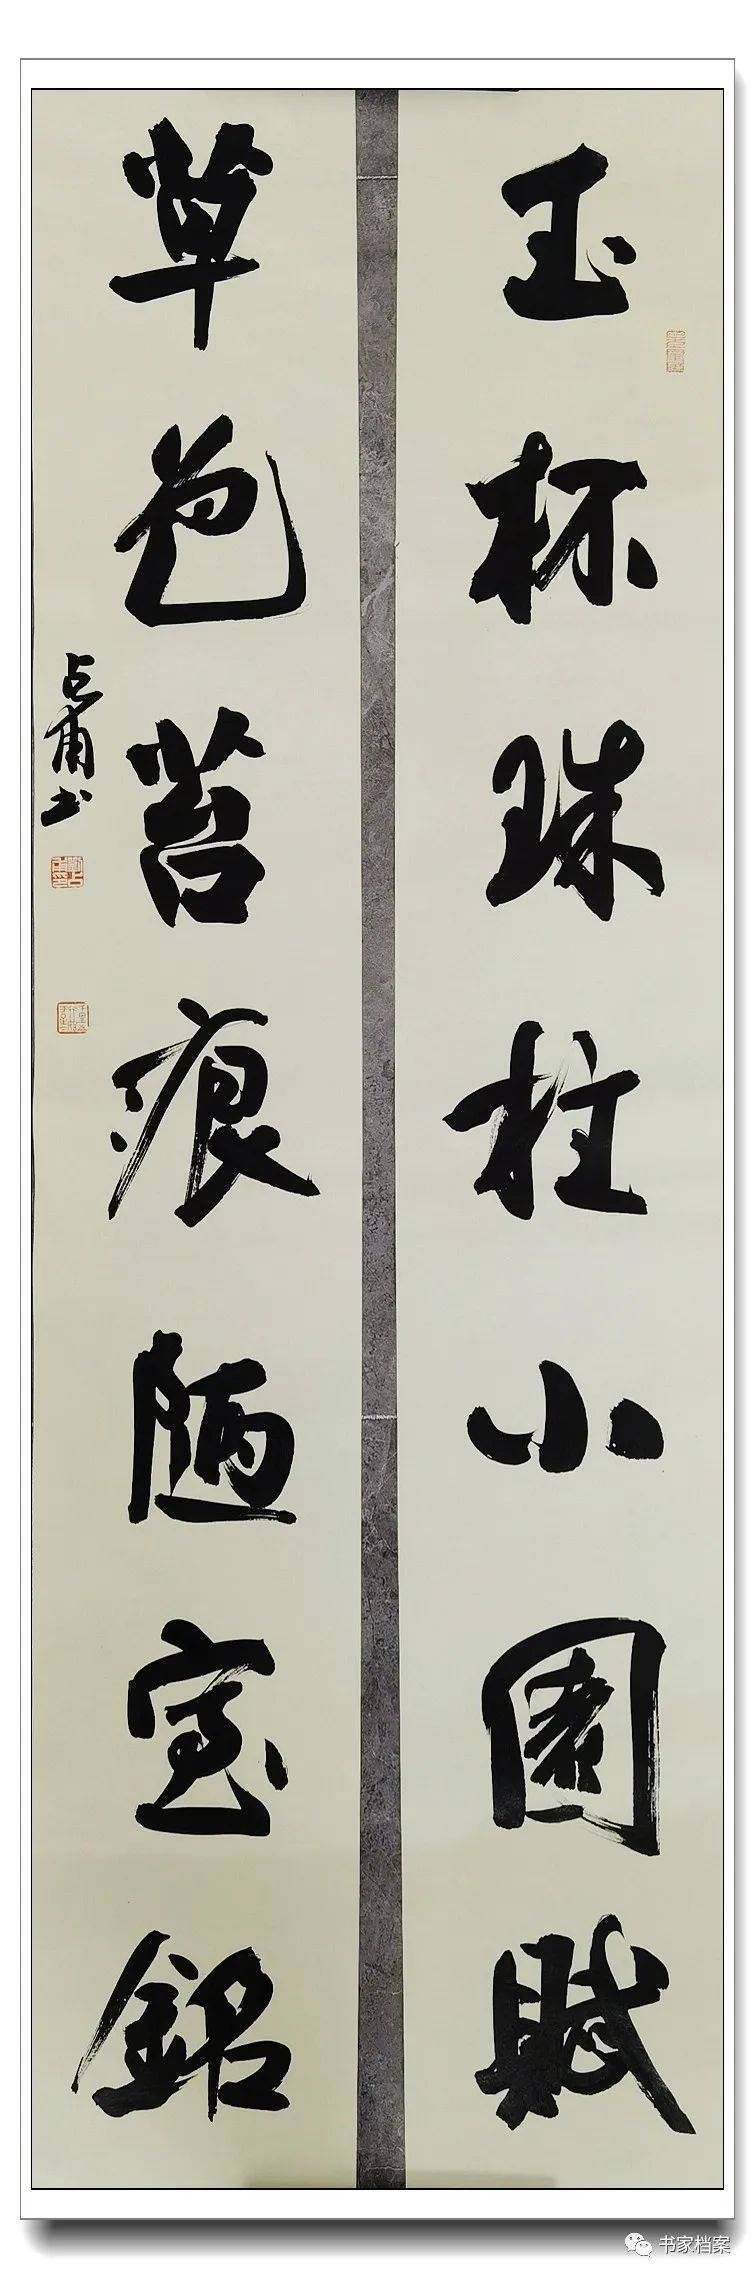 玉杯珠柱小園賦
草色苔痕陋室銘
占甫书
书家档案